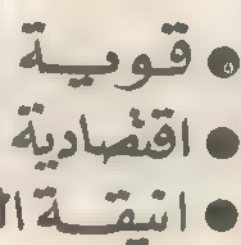 ● قوية
● اقتصادية
● انيقة